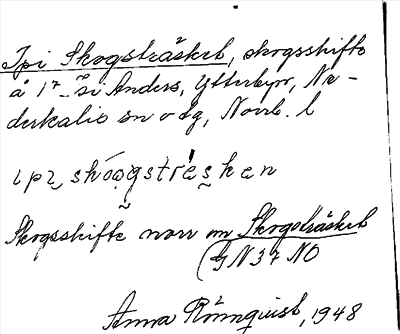 Ipi Skogsträsket, skogsskifte
å 1⁷ si Anders, Ytterbyn, Ne-
derkalix sn o dg, Norrb. l
skó̱gstrésken
Skogsskifte norr om Skogsträsket
(GN37NO
Anna Rönnqvist, 1948